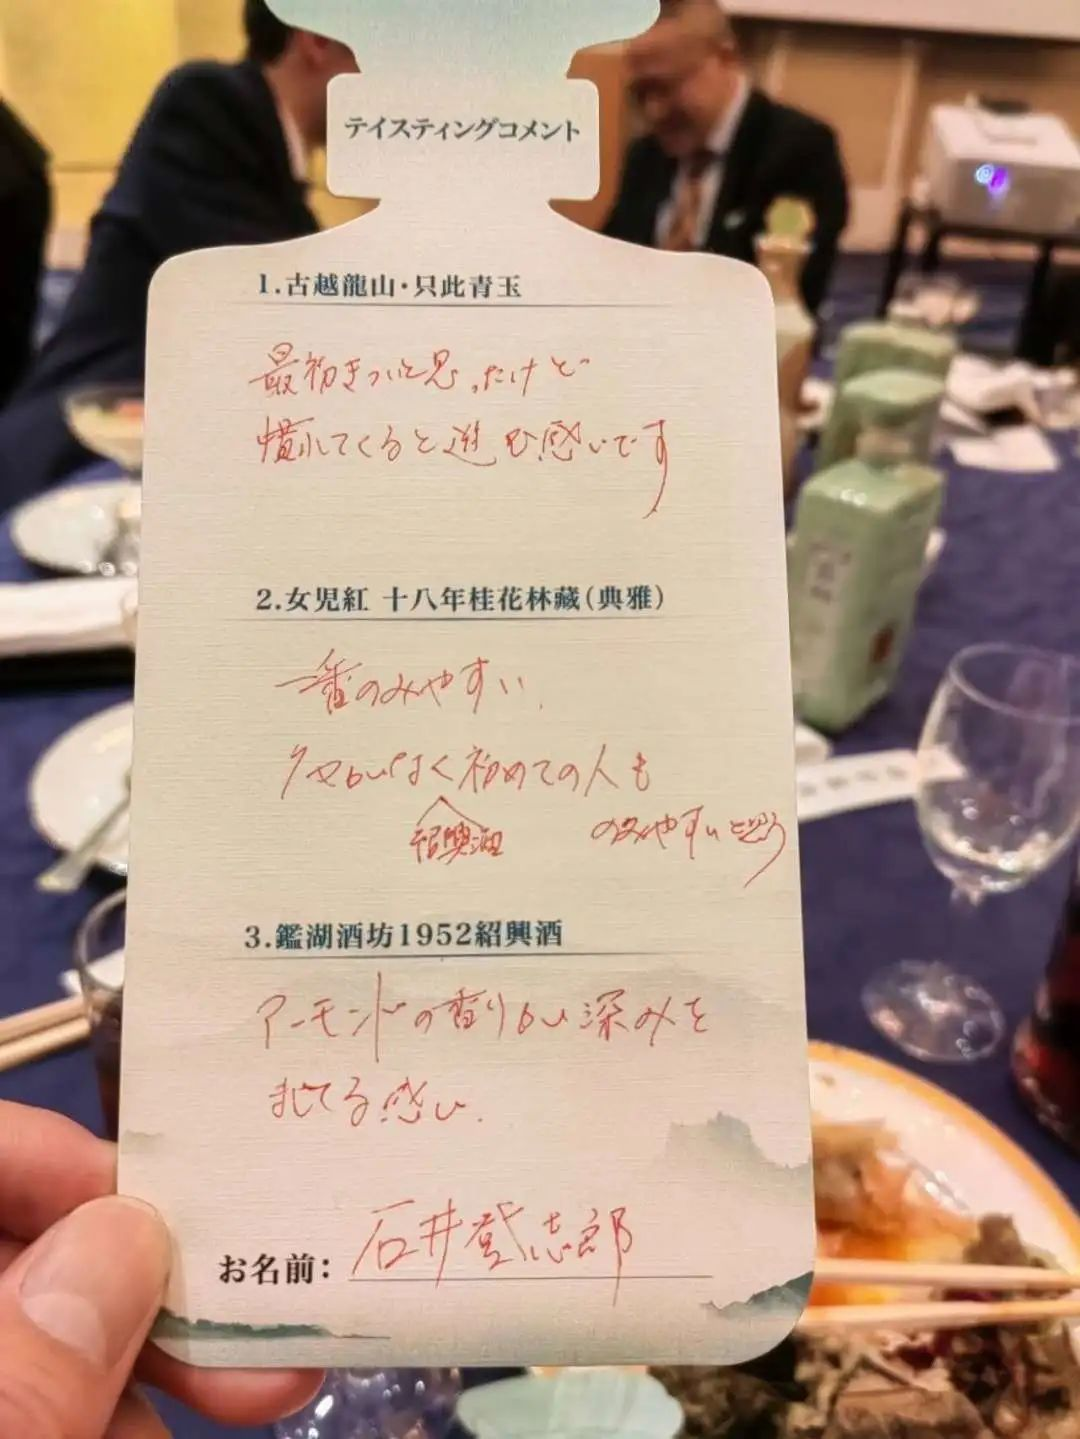 テイスティングコメント
1.古越龍山・只此青玉
最初きついと思ったけど
慣れてくると進む感じです
2.女児紅 十八年桂花林藏(典雅)
一番のみやすい、
クセもなく初めての人も
紹興酒 のみやすいと思う
3.鑑湖酒坊1952紹興酒
アーモンドの香りもい深みを
ましてる感じ.
お名前: 石井 志郎